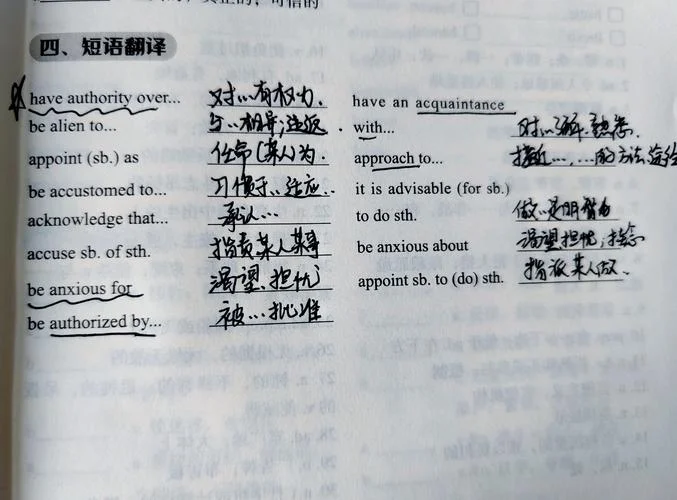 四、短语翻译
have authority over... 对…有权力.
be alien to... 与…相异;违返
appoint (sb.) as 任命(某人)为.
be accustomed to... 习惯于..适应.
acknowledge that... 承认…
accuse sb. of sth. 指责某人某事
be anxious for 渴望、担忧
be authorized by... 被…批准
have an acquaintance
with... 对…了解.熟悉.
approach to... 接近……的方法、途径
it is advisable (for sb.)
to do sth. 做…是明智的
be anxious about 渴望担忧;挂念
appoint sb. to (do) sth. 指派某人做.